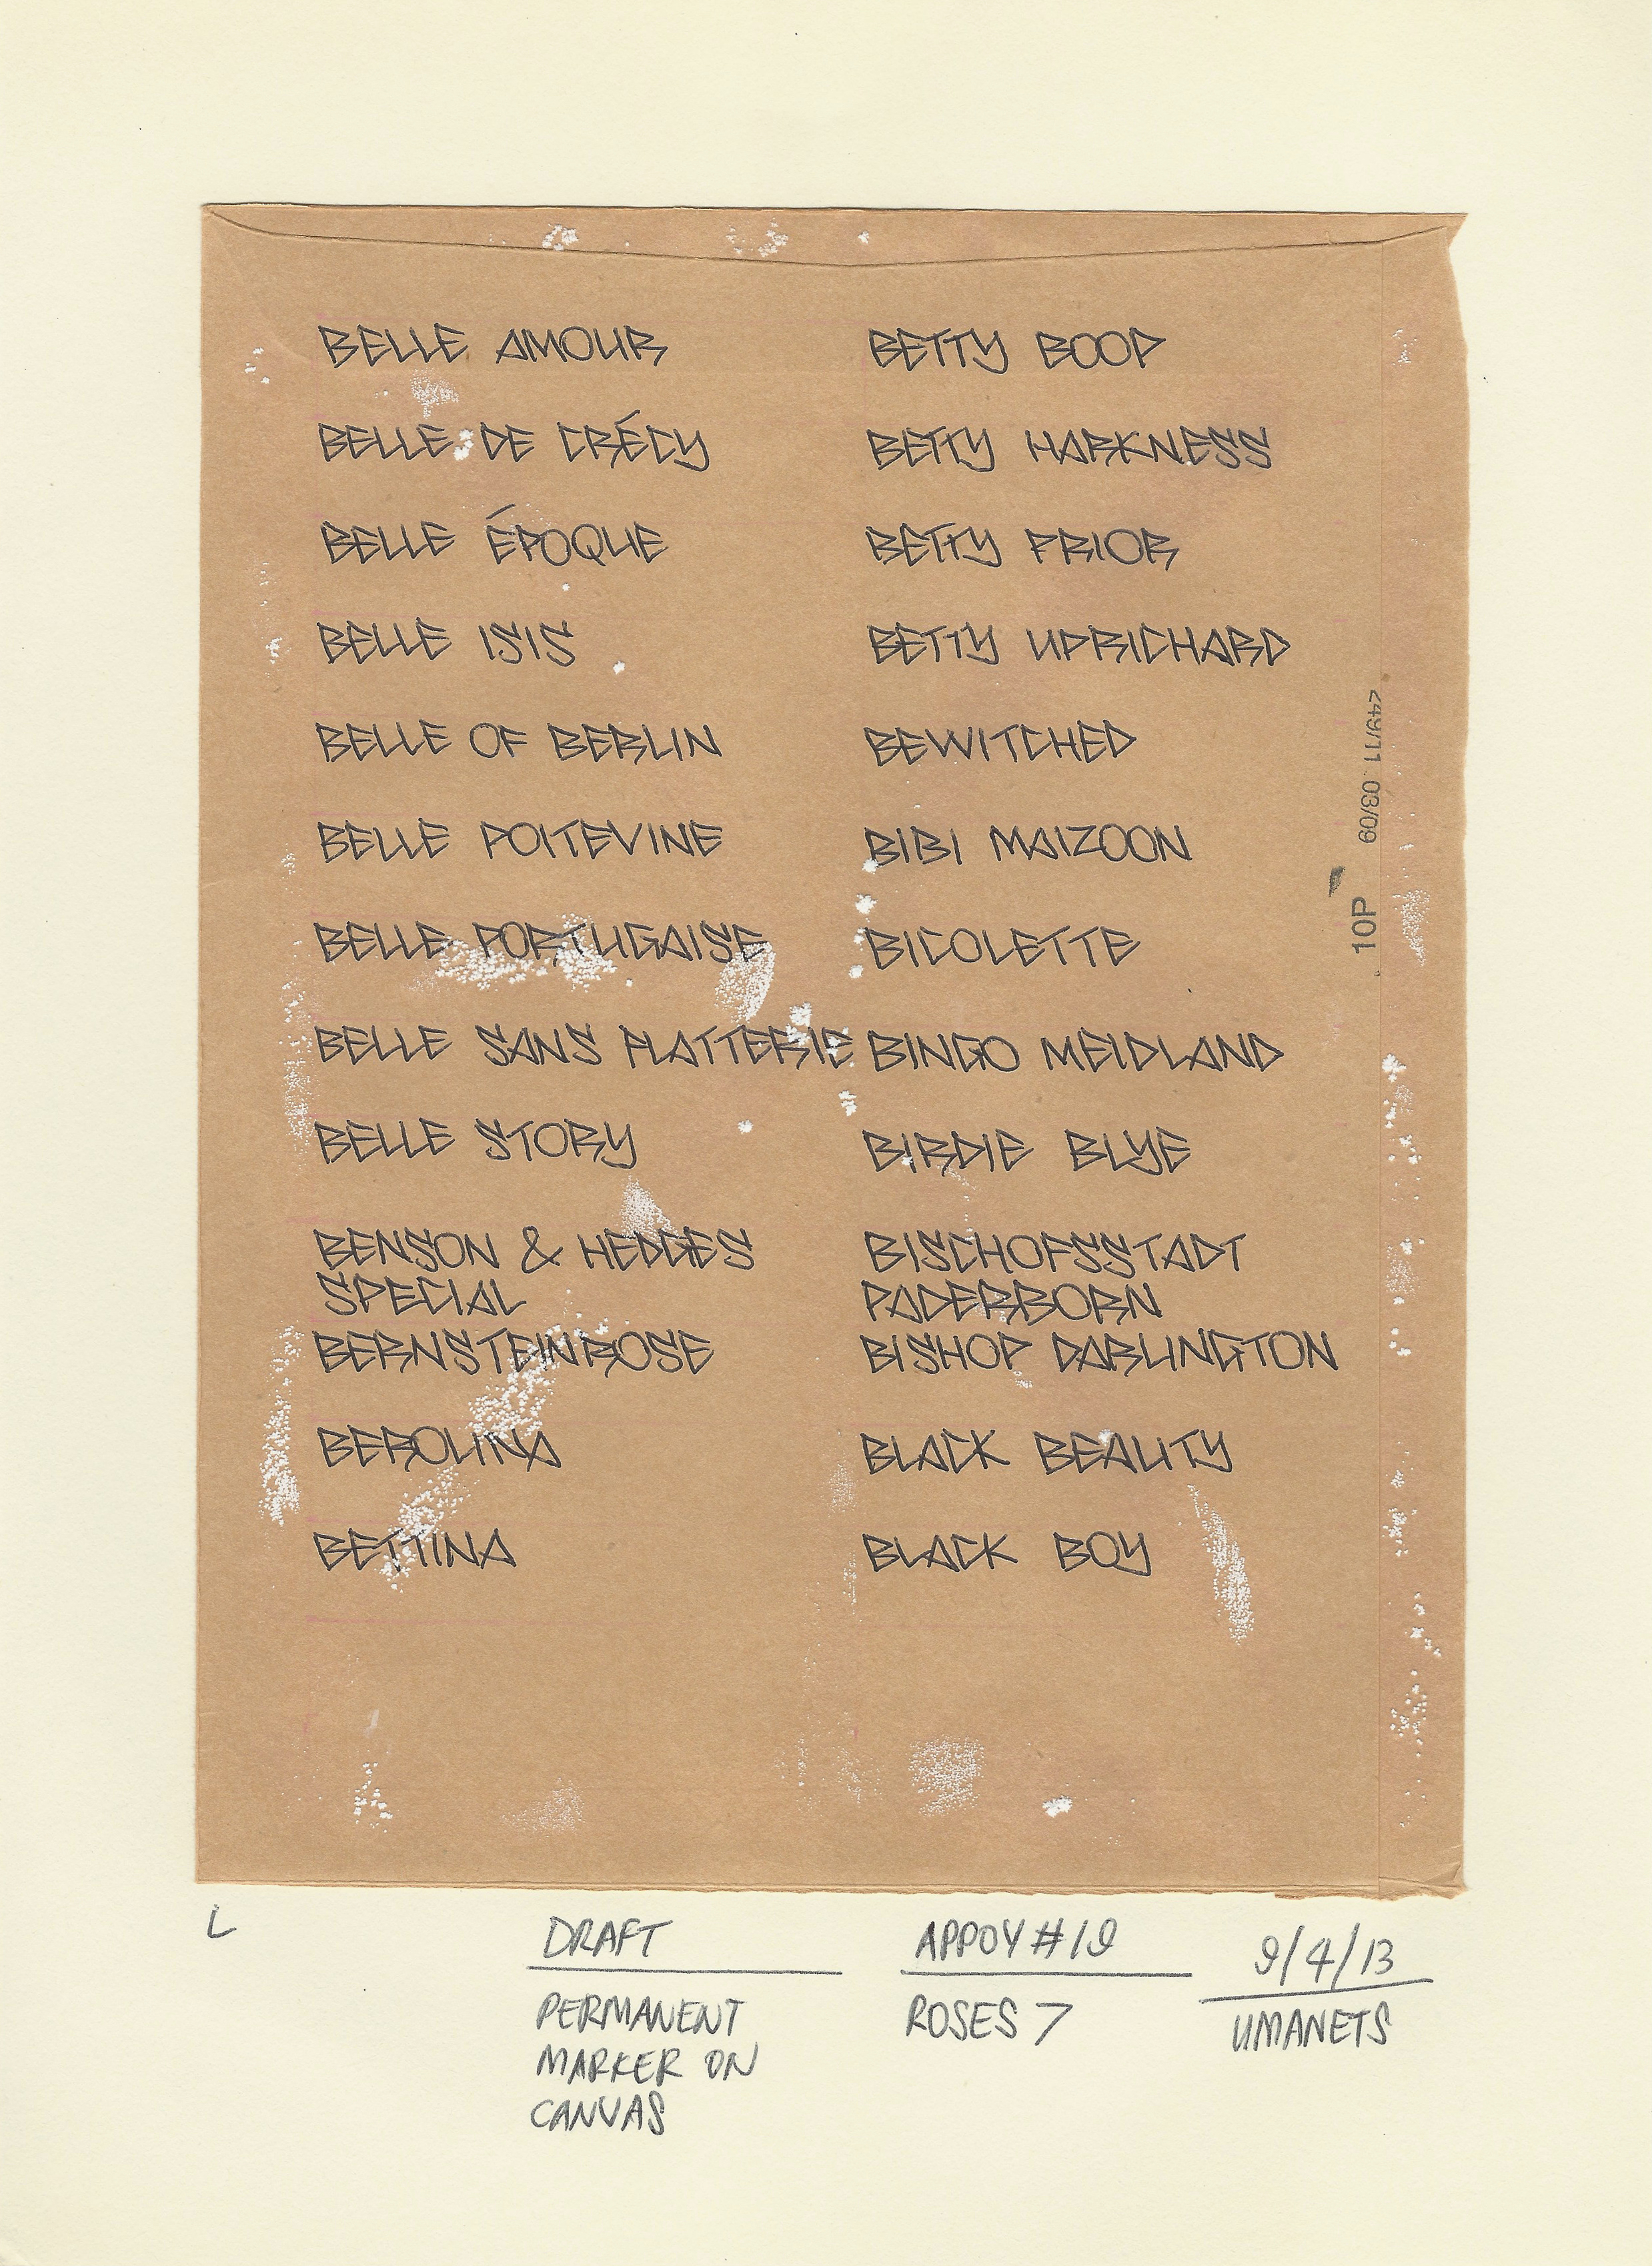 BELLE AMOUR
BELLE DE CRÉCY
BELLE ÉPOQUE
BELLE ISIS
BELLE OF BERLIN
BELLE POITEVINE
BELLE PORTUGAISE
BELLE SANS FLATTERIE
BELLE STORY
BENSON & HEDGES
SPECIAL
BERNSTEINROSE
BEROLINA
BETTINA
BETTY BOOP
BETTY HARKNESS
BETTY PRIOR
BETTY UPRICHARD
BEWITCHED
BIBI MAIZOON
BICOLETTE
BINGO MEIDLAND
BIRDIE BLYE
BISCHOFSSTADT
PADERBORN
BISHOP DARLINGTON
BLACK BEAUTY
BLACK BOY
10P 03/09
L
DRAFT
PERMANENT
MARKER ON
CANVAS
APPOY #19
ROSES 7
9/4/13
UMANETS